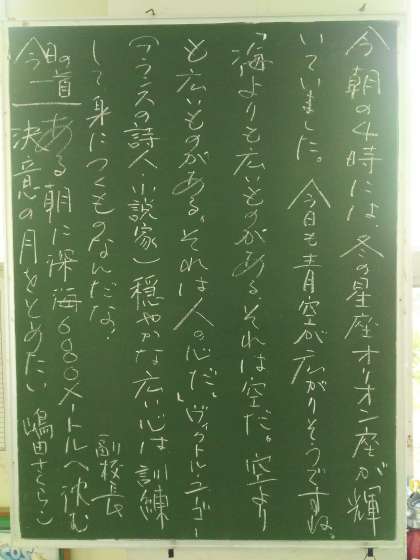 今朝の4時には、冬の星座オリオン座が輝
いていました。今日も青空が広がりそうですね。
「海よりも広いものがある、それは空だ。空より
も広いものがある、それは人の心だ」ヴィクトル・ユーゴー
(フランスの詩人・小説家)穏やかな広い心は、訓練
して身につくものなんだな。 副校長
今日の一首 ある朝に深海680メートルへ沈む
決意の月をとめたい 嶋田さくらこ